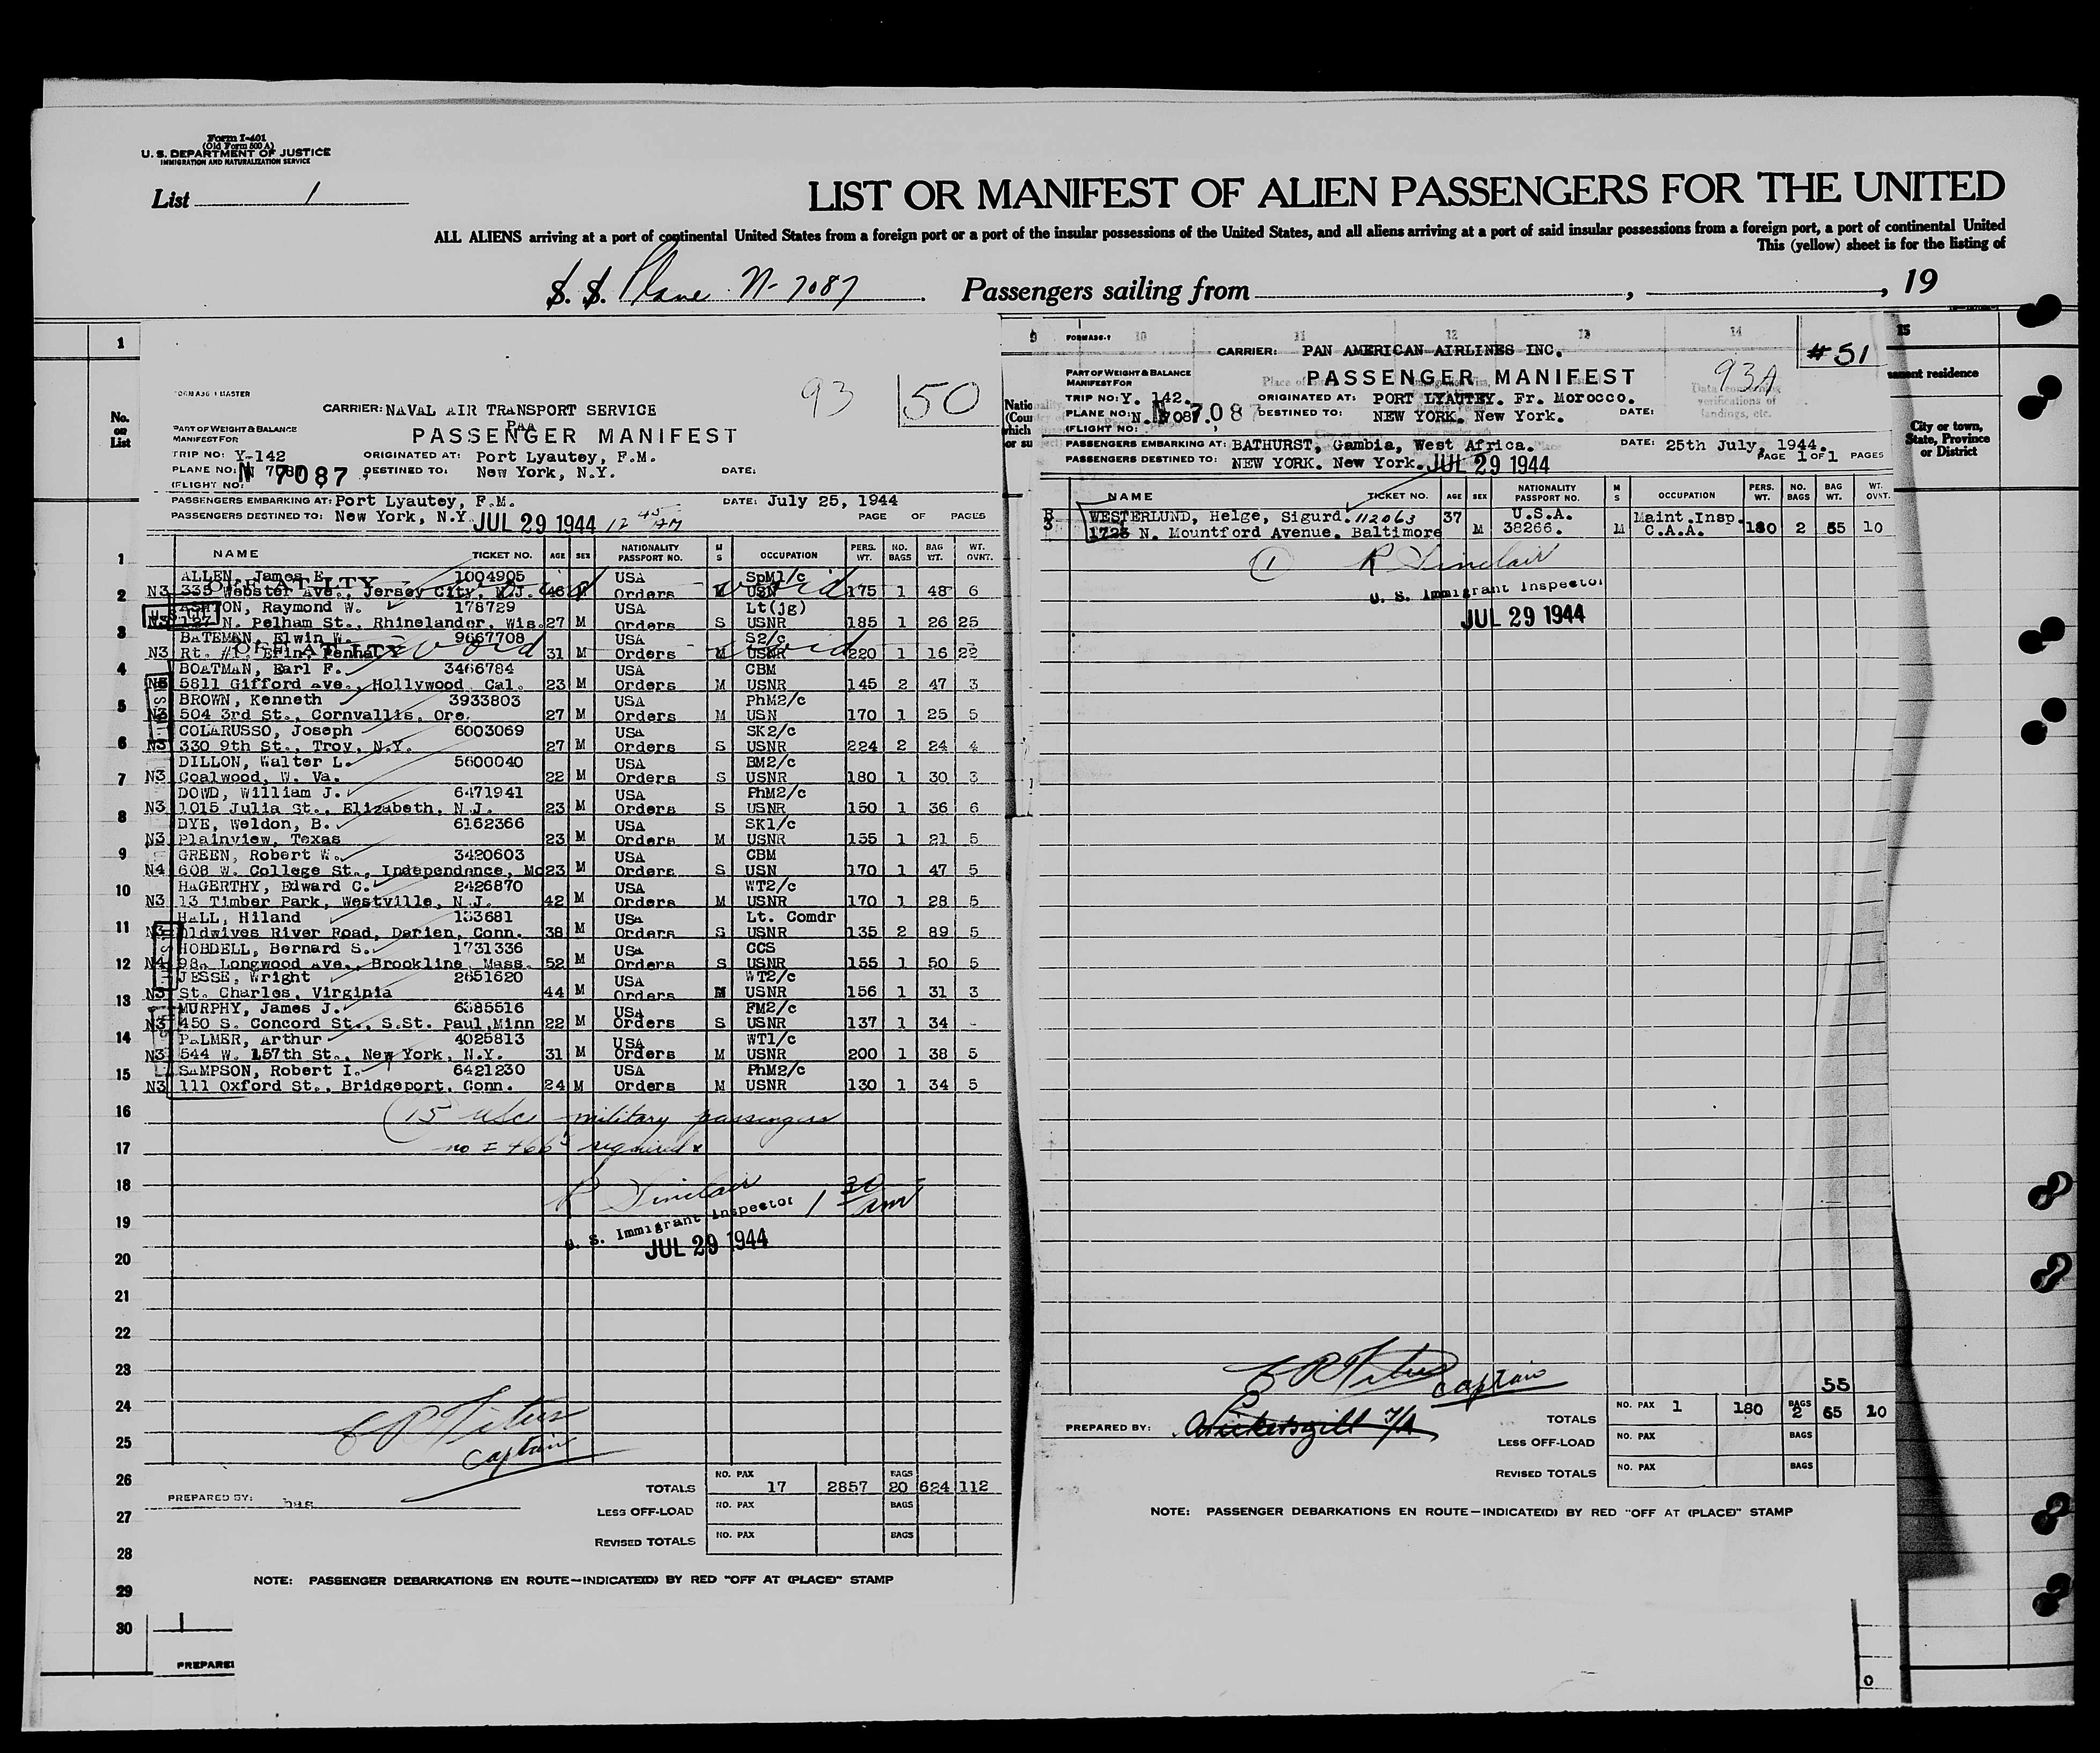 Form I-401
(Old Form 500 A)
U. S. DEPARTMENT OF JUSTICE
IMMIGRATION AND NATURALIZATION SERVICE
List 1
LIST OR MANIFEST OF ALIEN PASSENGERS FOR THE UNITED
ALL ALIENS arriving at a port of continental United States from a foreign port or a port of the insular possessions of the United States, and all aliens arriving at a port of said insular possessions from a foreign port, a port of continental United
This (yellow) sheet is for the listing of
S. S. Plane N-7087 Passengers sailing from , , 19
1
No. on List
93 50
CARRIER: NAVAL AIR TRANSPORT SERVICE
PAA
PASSENGER MANIFEST
PART OF WEIGHT & BALANCE
MANIFEST FOR
TRIP NO: Y-142 ORIGINATED AT: Port Lyautey, F.M.
PLANE NO: N 7087 DESTINED TO: New York, N.Y. DATE:
(FLIGHT NO:
PASSENGERS EMBARKING AT: Port Lyautey, F.M. DATE: July 25, 1944
PASSENGERS DESTINED TO: New York, N.Y. JUL 29 1944 12 45 AM PAGE OF PAGES
NAME TICKET NO. AGE SEX NATIONALITY PASSPORT NO. M S OCCUPATION PERS. WT. NO. BAGS BAG WT. WT. OVNT.
ALLEN, James E. 1004905 USA SpM1/c
OFF AT LTY void void
N3 335 Webster Ave., Jersey City, N.J. 46 M Orders M USN 175 1 48 6
ASHTON, Raymond W. 176729 USA Lt(jg)
N3 127 N. Pelham St., Rhinelander, Wis. 27 M Orders S USNR 185 1 26 25
BATEMAN, Elwin W. 9667708 USA S2/c
OFF AT LTY void void
N3 Rt. #1, Erin, Penna. 31 M Orders M USNR 220 1 16 22
BOATMAN, Earl F. 3466784 USA CBM
N3 5811 Gifford Ave., Hollywood Cal. 23 M Orders M USNR 145 2 47 3
BROWN, Kenneth 3933803 USA PhM2/c
N3 504 3rd St., Cornvallis, Ore. 27 M Orders M USN 170 1 25 5
COLARUSSO, Joseph 6003069 USA SK2/c
N3 330 9th St., Troy, N.Y. 27 M Orders S USNR 224 2 24 4
DILLON, Walter L. 5600040 USA BM2/c
N3 Coalwood, W. Va. 22 M Orders S USNR 180 1 30 3
DOWD, William J. 6471941 USA PhM2/c
N3 1015 Julia St., Elizabeth, N.J. 23 M Orders S USNR 150 1 36 6
DYE, Weldon, B. 6162366 USA SK1/c
N3 Plainview, Texas 23 M Orders M USNR 155 1 21 5
GREEN, Robert W. 3420603 USA CBM
N4 608 W. College St., Independence, Mo 23 M Orders S USN 170 1 47 5
HAGERTHY, Edward C. 2426870 USA WT2/c
N3 13 Timber Park, Westville, N.J. 42 M Orders M USNR 170 1 28 5
HALL, Hiland 133681 USA Lt. Comdr
N3 Oldwives River Road, Darien, Conn. 38 M Orders S USNR 135 2 89 5
HOBDELL, Bernard S. 1731336 USA CCS
N4 98a Longwood Ave., Brookline Mass. 52 M Orders S USNR 155 1 50 5
JESSE, Wright 2651620 USA WT2/c
N3 St. Charles, Virginia 44 M Orders M USNR 156 1 31 3
MURPHY, James J. 6385516 USA FM2/c
N3 450 S. Concord St., S.St. Paul, Minn 22 M Orders S USNR 137 1 34 -
PALMER, Arthur 4025813 USA WT1/c
N3 544 W. 157th St., New York, N.Y. 31 M Orders M USNR 200 1 38 5
SAMPSON, Robert I. 6421230 USA PhM2/c
N3 111 Oxford St., Bridgeport, Conn. 24 M Orders M USNR 130 1 34 5
15 USCs military passengers
no I 466's required
R Sinclair 1 30 am
U. S. Immigrant Inspector
JUL 29 1944
E R Titus
Captain
TOTALS NO. PAX 17 2857 BAGS 20 624 112
PREPARED BY: has
LESS OFF-LOAD NO. PAX BAGS
REVISED TOTALS NO. PAX BAGS
NOTE: PASSENGER DEBARKATIONS EN ROUTE—INDICATE(D) BY RED "OFF AT (PLACE)" STAMP
1
2
3
4
5
6
7
8
9
10
11
12
13
14
15
16
17
18
19
20
21
22
23
24
25
26
27
28
29
30
PREPARE
9 10 11 12 13 14 15
FORM A36-1
CARRIER: PAN AMERICAN AIRLINES INC. #51
PART OF WEIGHT & BALANCE
MANIFEST FOR
PASSENGER MANIFEST 93A
TRIP NO: Y. 142. ORIGINATED AT: PORT LYAUTEY. Fr. Morocco.
PLANE NO: N. 7087. N 7087 DESTINED TO: NEW YORK. New York. DATE:
(FLIGHT NO:
PASSENGERS EMBARKING AT: BATHURST, Gambia, West Africa. DATE: 25th July, 1944.
PASSENGERS DESTINED TO: NEW YORK. New York. JUL 29 1944 PAGE 1 OF 1 PAGES
NAME TICKET NO. AGE SEX NATIONALITY PASSPORT NO. M S OCCUPATION PERS. WT. NO. BAGS BAG WT. WT. OVNT.
WESTERLUND, Helge, Sigurd. 112063 37 U.S.A. Maint.Insp.
1723 N. Mountford Avenue. Baltimore M 38266. M C.A.A. 180 2 55 10
1 R Sinclair
U. S. Immigrant Inspector
JUL 29 1944
E R Titus
Captain
55
TOTALS NO. PAX 1 180 BAGS 2 65 10
PREPARED BY:
LESS OFF-LOAD NO. PAX BAGS
REVISED TOTALS NO. PAX BAGS
NOTE: PASSENGER DEBARKATIONS EN ROUTE—INDICATE(D) BY RED "OFF AT (PLACE)" STAMP
Place of
Data concerning
verifications of
landings, etc.
anent residence
City or town,
State, Province
or District
0